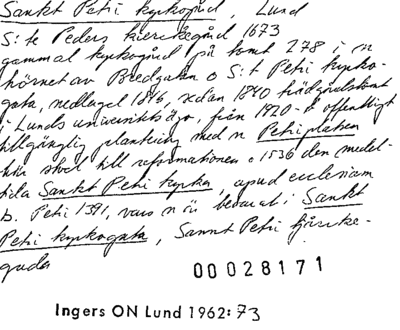 Sankt Petri kyrkogård, Lund
S:te Peders kierckegård 1673
gammal kyrkogård på tomt 278 i n
hörnet av Bredgatan o S:t Petri kyrko-
gata, nedlagd 1816, sedan 1840 trädgårdstomt
i Lunds universitets ägo, från 1920-t offentligt
tillgänglig plantering med n Petriplatsen
här stod till reformationen o 1536 den medel-
tida Sankt Petri kyrka, apud ecclesiam
b. Petri 1391, vars n är bevarat i Sankt
Petri kyrkogata, Sannt Petri
gada
00028171
Ingers ON Lund 1962:73